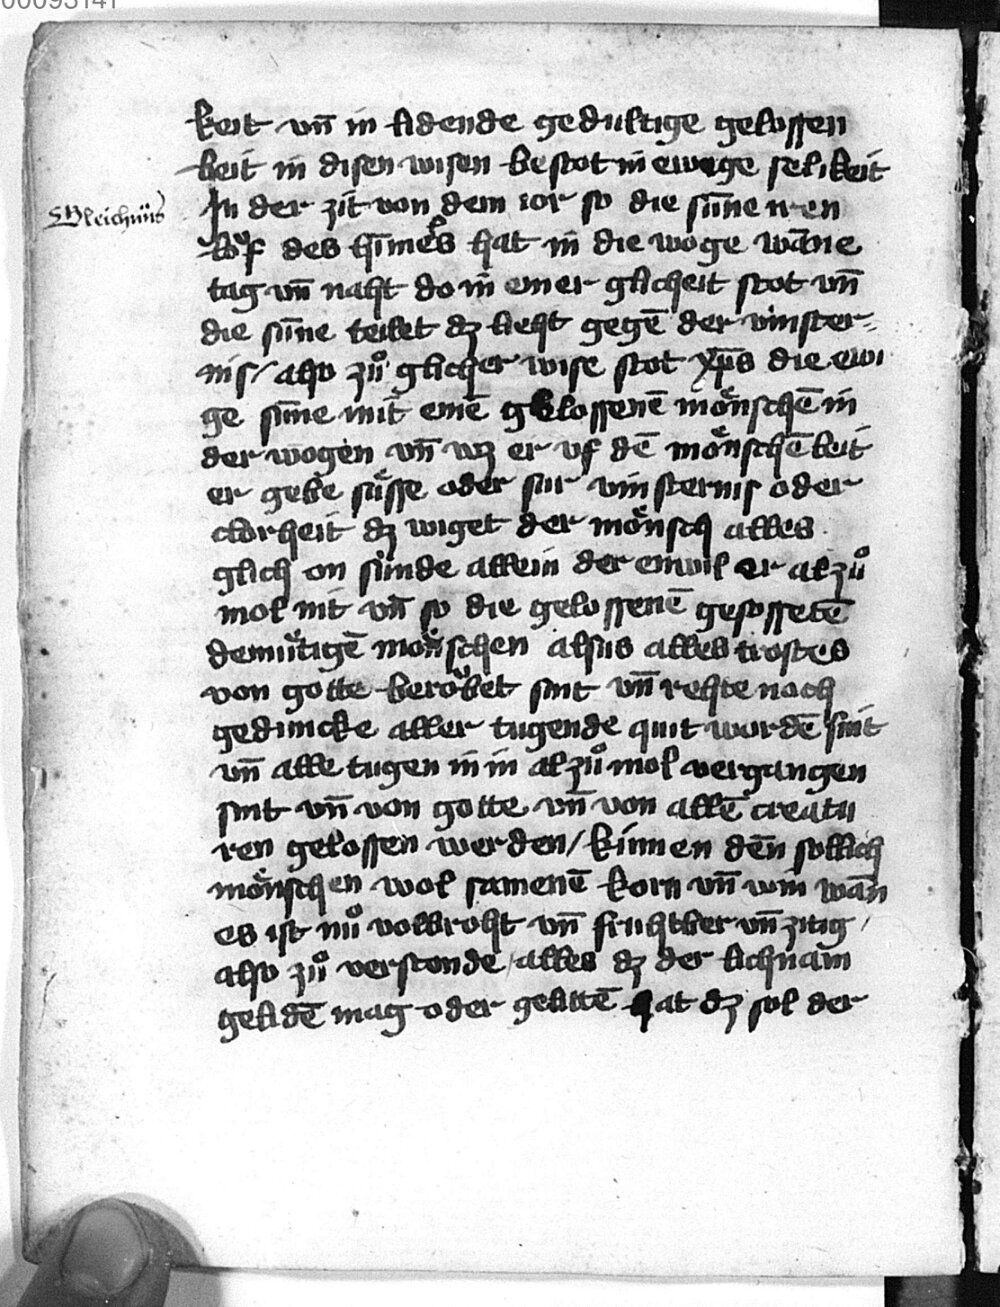 00093141
keit vn̄ in lidende gedultige gelossen
heit in disen wisen bestot in ewege selikeit
Gleichnüs
In der zit von dem ior so die sūne iren
löf des himels hat in die woge wāne
tag vn̄ naht do in einer glicheit stot vn̄
die sūne teilet dz lieht gegē der vinster
nis / also zuͦ glicher wise stot xp̄s die ewi
ge sūne mit einē gelossenē moͤnschē in
der wogen vn̄ wz er vf dē moͤnschē leit
er gebe suͤsse oder sur vinsternis oder
clorheit dz wiget der moͤnsch alles
glich on sünde allein der enwil er alzuͦ
mol nit vn̄ so die gelossenē gesossetē
demuͤtigē moͤnschen alsus alles trostes
von gotte beroͧbet sint vn̄ rehte noch
gedüncke aller tugende quit wordē sint
vn̄ alle tugen in in alzuͦmol vergangen
sint vn̄ von gotte vn̄ von allē creatu
ren gelossen werden / kinnen dēn sollich
moͤnschen wol samenē korn vn̄ win wān
es ist nuͦ vollbroht vn̄ fruhtber vn̄ zitig /
also zuͦ verstonde / alles dz der lichnam
gelidē mag oder gelittē hat dz sol der